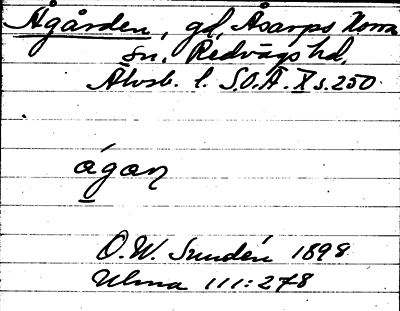 Ågården, gd, Åsarps Norra
sn. Redvägs hd,
Älvsb. l. S.O.Ä. X s. 250.
ágan
O.W. Sundén 1898
Ulma 111:278